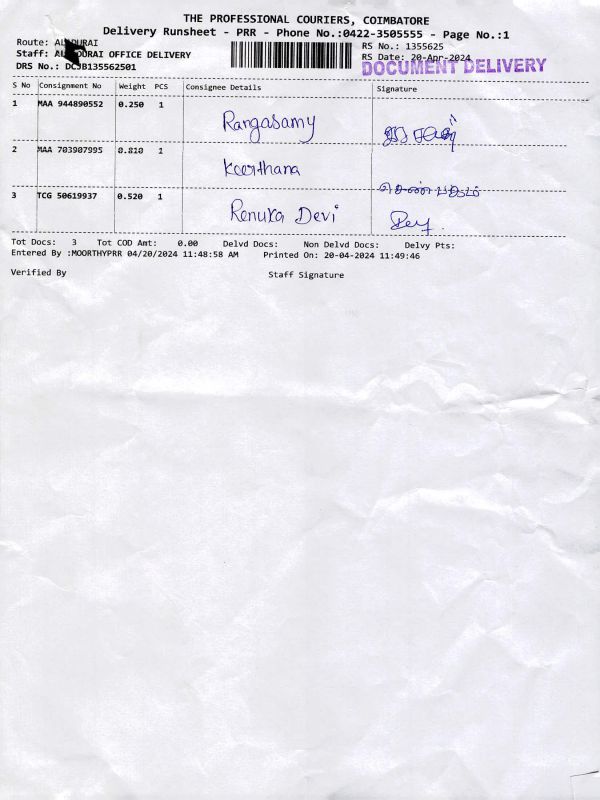 THE PROFESSIONAL COURIERS, COIMBATORE
Delivery Runsheet - PRR - Phone No.:0422-3505555 - Page No.:1
Route: DURAI
Staff: DURAI OFFICE DELIVERY
DRS No.: DCJB135562501
RS No.: 1355625
RS Date: 20-Apr-2024
DOCUMENT DELIVERY
S No Consignment No Weight PCS Consignee Details Signature
1 MAA 944890552 0.250 1 Rangasamy
2 MAA 703907995 0.810 1 Keerthana
3 TCG 50619937 0.520 1 Renuka Devi
Tot Docs: 3 Tot COD Amt: 0.00 Delvd Docs: Non Delvd Docs: Delvy Pts:
Entered By :MOORTHYPRR 04/20/2024 11:48:58 AM Printed On: 20-04-2024 11:49:46
Verified By Staff Signature